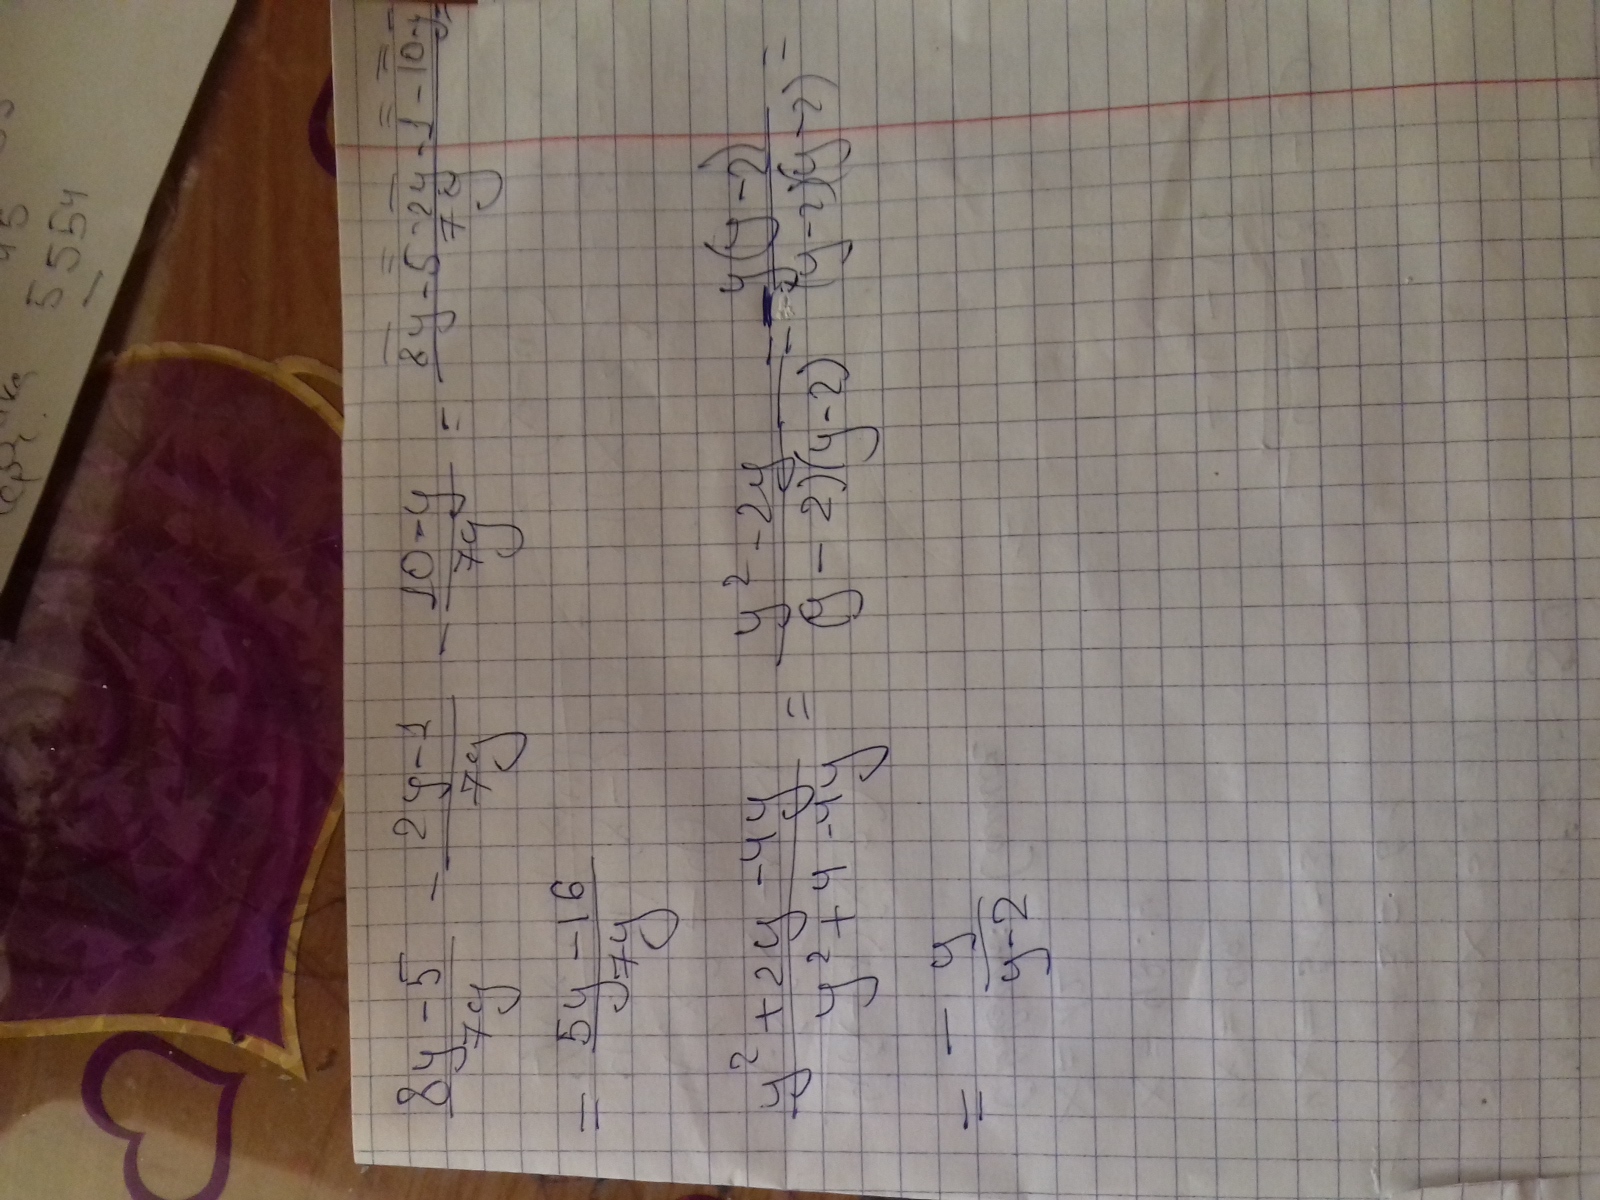 (8y-5)/(7y) - (2y-1)/(7y) - (10-y)/(7y) = (8y-5-2y-1-10-y)/(7y) =
= (5y-16)/(7y)
(y²+2y-4y)/(y²+4-4y) = (y²-2y)/((y-2)(y-2)) = (y(y-2))/((y-2)(y-2)) =
= - y/(y-2)
5554